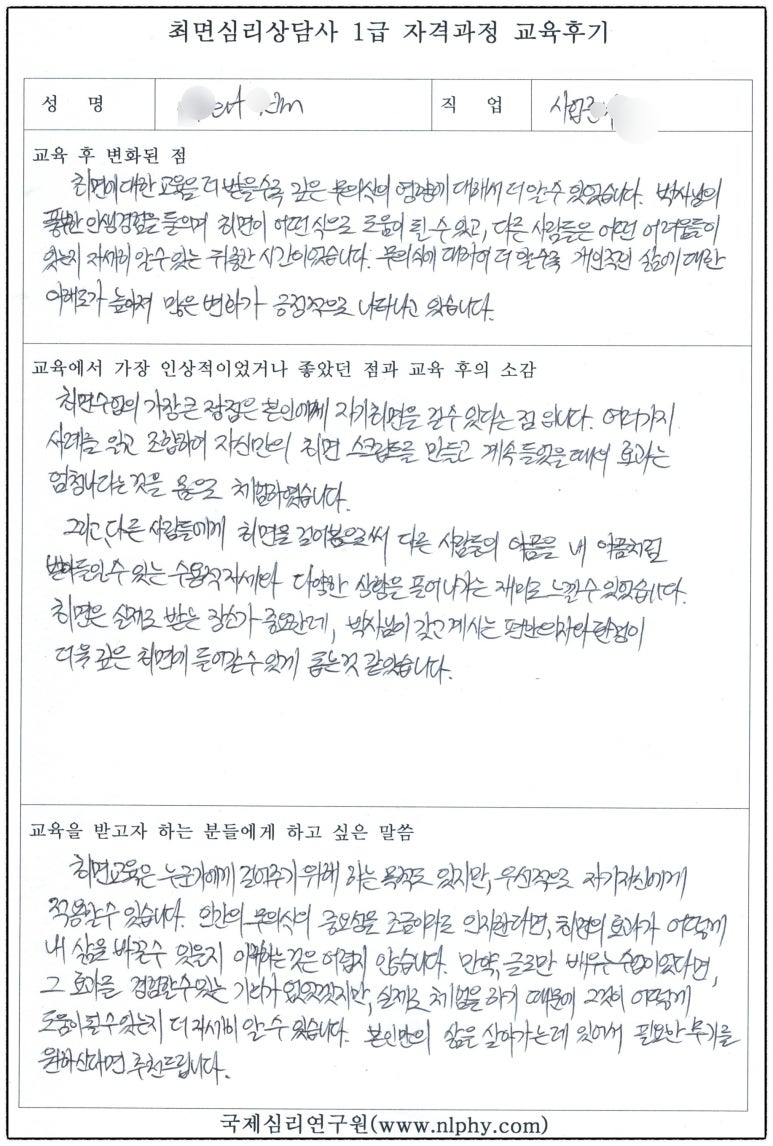 최면심리상담사 1급 자격과정 교육후기
성 명 직 업
교육 후 변화된 점
최면에 대한 교육을 더 받을수록 깊은 무의식의 영향에 대해서 더 알 수 있었습니다. 박사님의
풍부한 인생경험을 들으며 최면이 어떤 식으로 도움이 될 수 있고, 다른 사람들은 어떤 어려움들이
있는지 자세히 알 수 있는 뒤 시간이었습니다. 무의식에 대하여 더 알수록 개인적인 삶에 대한
이해도가 높아져 많은 변화가 긍정적으로 나타나고 있습니다.
교육에서 가장 인상적이었거나 좋았던 점과 교육 후의 소감
최면수업의 가장 큰 장점은 본인에게 자기최면을 걸 수 있다는 점 입니다. 여러가지
사례를 읽고 조합하여 자신만의 최면 스크립트를 만들고 계속 들었을 때의 효과는
엄청나다는 것을 몸으로 체험하였습니다.
그리고, 다른 사람들에게 최면을 걸어봄으로써 다른 사람들의 아픔을 내 아픔처럼
받아들일 수 있는 수용적 자세와 다양한 상황을 풀어나가는 재미도 느낄 수 있었습니다.
최면은 실제로 받는 장소가 중요한데, 박사님이 갖고 계시는 편안한 의자와 환경이
더욱 깊은 최면에 들어갈 수 있게 돕는 것 같았습니다.
교육을 받고자 하는 분들에게 하고 싶은 말씀
최면교육은 누군가에게 걸어주기 위해 하는 목적도 있지만, 우선적으로 자기자신에게
적용할 수 있습니다. 인간의 무의식의 중요성을 조금이라도 인지한다면, 최면의 효과가 어떻게
내 삶을 바꿀 수 있을지 이해하는 것은 어렵지 않습니다. 만약, 글로만 배우는 수업이었다면,
그 효과를 경험할 수 있는 기회가 없었겠지만, 실제로 체험을 하기 때문에 그것이 어떻게
도움이 될 수 있는지 더 자세히 알 수 있습니다. 본인만의 삶을 살아가는데 있어서 필요한 무기를
원하신다면 추천드립니다.
국제심리연구원(www.nlphy.com)